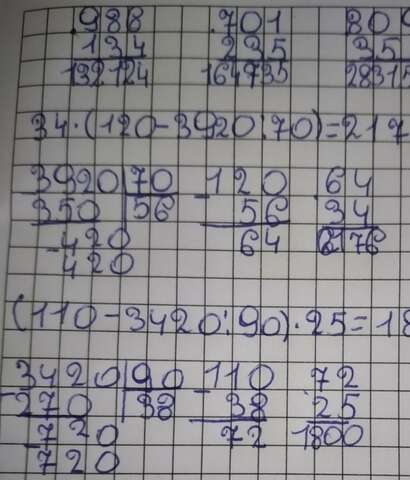 .988 .701 309
134 235 35
132124 164735 28315
34·(120-3920:70)=217
3920 70 -120 .64
350 56 56 34
-420 64 2176
420
(110-3420:90)·25=18
3420 90 -110 72
-270 38 38 .25
720 72 1800
720